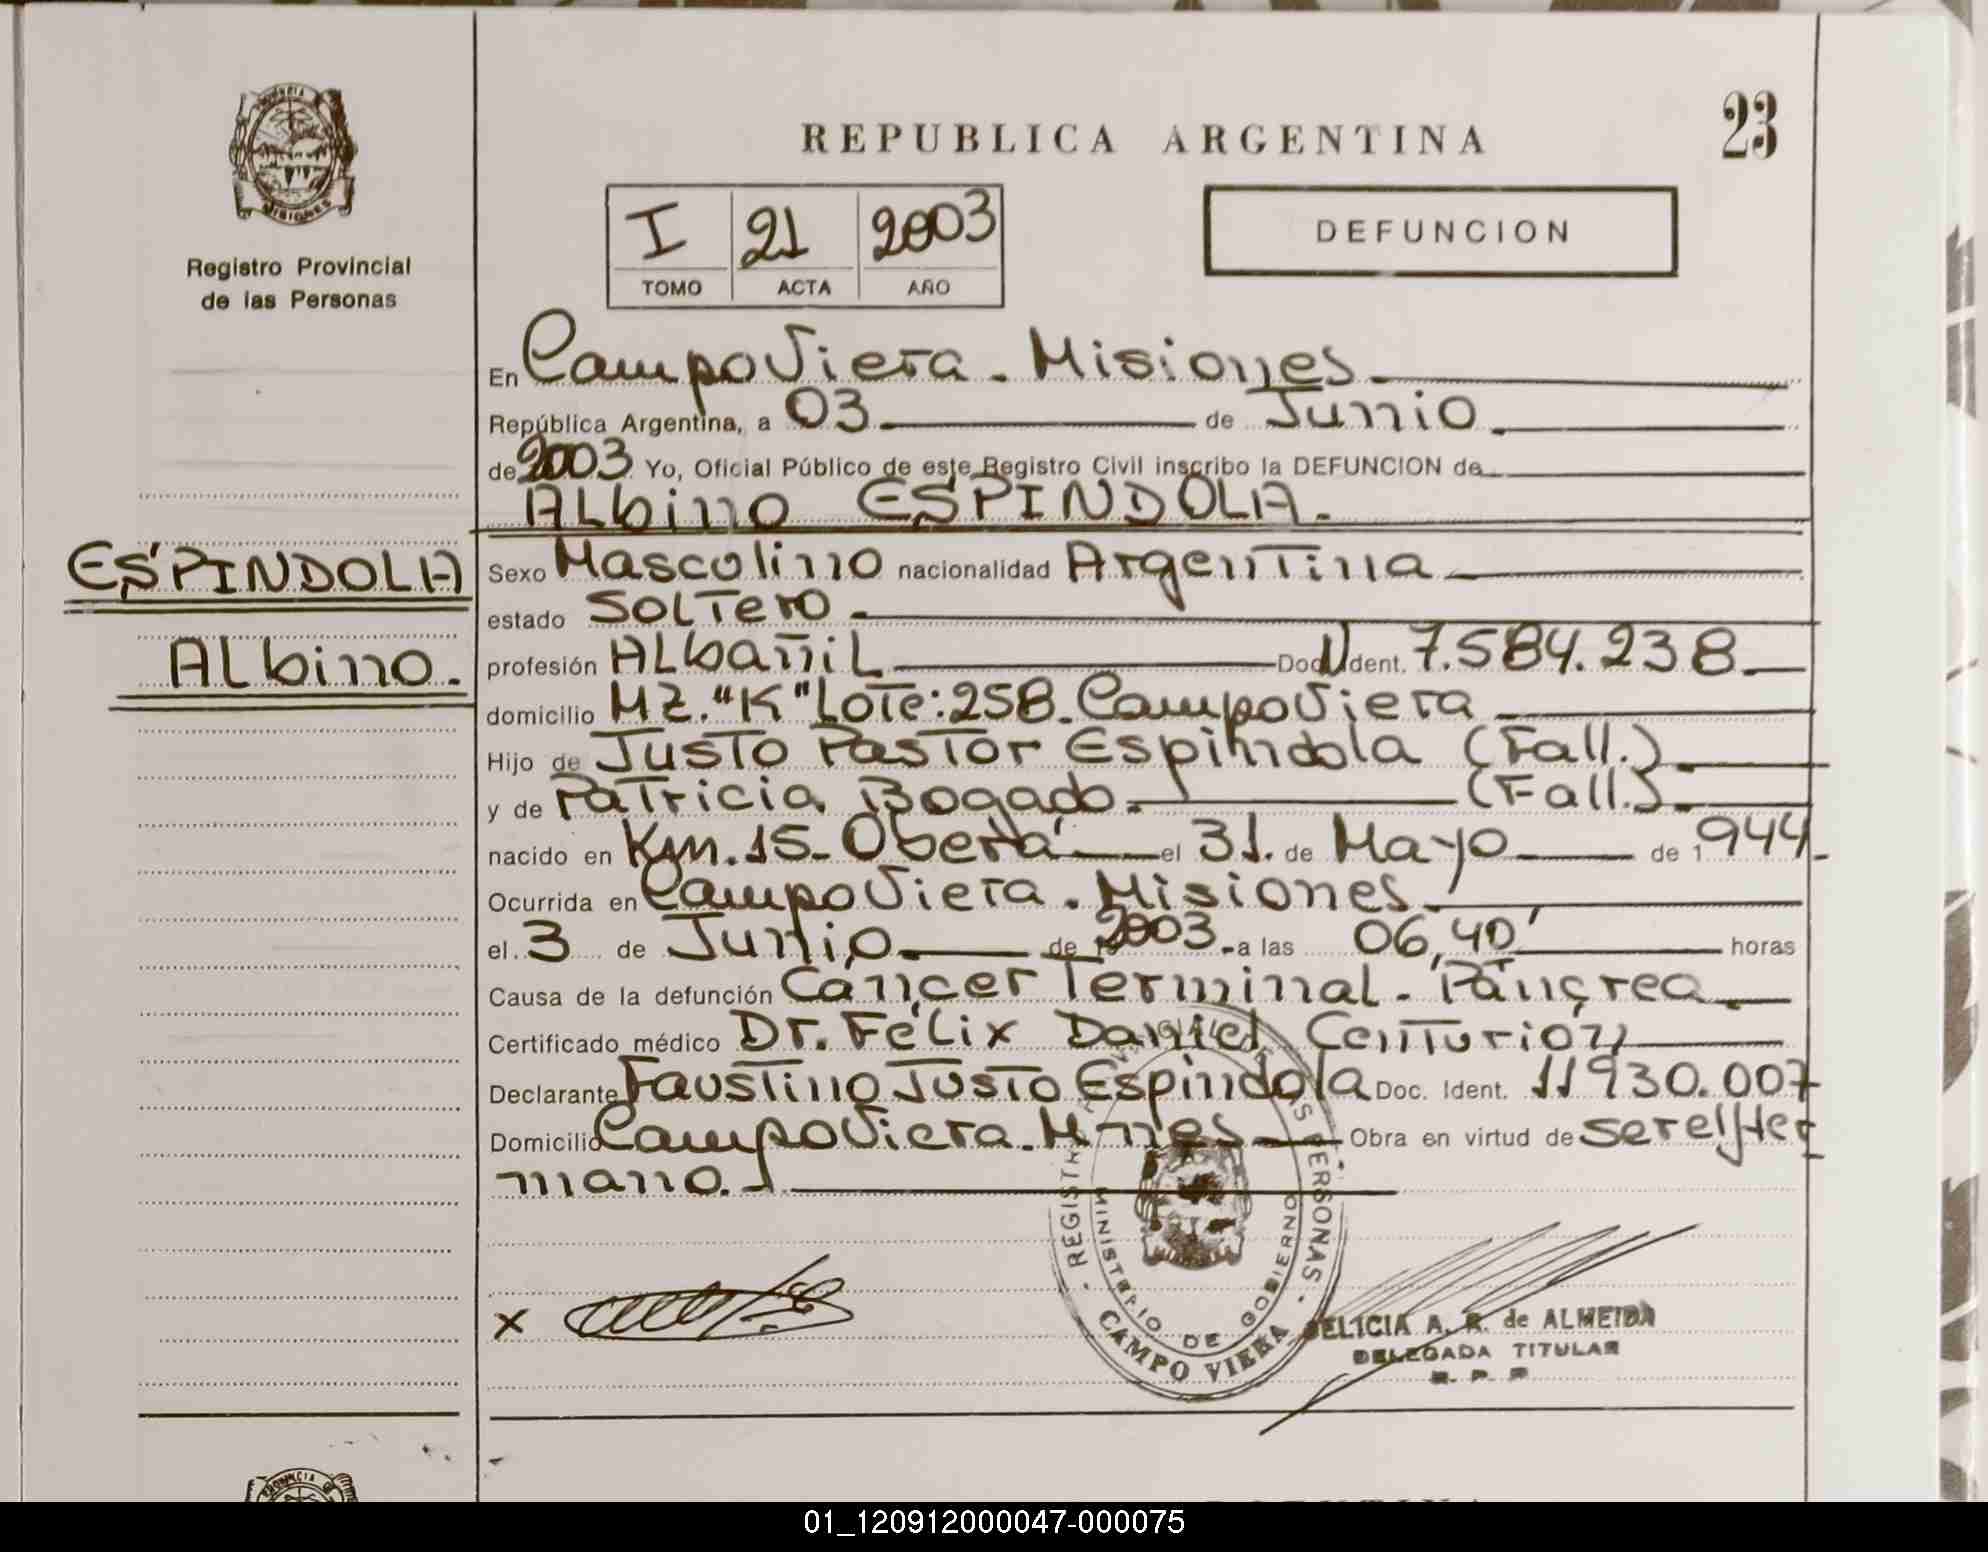 PROVINCIA
MISIONES
Registro Provincial
de las Personas
ESPINDOLA
Albino.
REPUBLICA ARGENTINA
23
I 21 2003
TOMO ACTA AÑO
DEFUNCION
En Campo Viera - Misiones
República Argentina, a 03 de Junio
de 2003 Yo, Oficial Público de este Registro Civil inscribo la DEFUNCION de
Albino ESPINDOLA.
Sexo Mascolino nacionalidad Argentina
estado Soltero
profesión Albañil Doc. Ident. 7.584.238
domicilio Mz. "K" Lote: 258 - Campo Viera
Hijo de Justo Pastor Espindola (Fall.)
y de Patricia Bogado. (Fall.)
nacido en Km. 15 - Oberá el 31. de Mayo de 1944
Ocurrida en Campo Viera - Misiones
el 3 de Junio de 2003 a las 06,40' horas
Causa de la defunción Cancer Terminal - Páncrea
Certificado médico Dr. Félix Daniel Centurión
Declarante Faustino Justo Espindola Doc. Ident. 11930.007
Domicilio Campo Viera - Mnes Obra en virtud de ser el Her
mano.
REGISTRO PROVINCIAL DE LAS PERSONAS
MINISTERIO DE GOBIERNO
CAMPO VIERA
x
DELICIA A. R. de ALMEIDA
DELEGADA TITULAR
R. P. P.
PROVINCIA
01_120912000047-000075